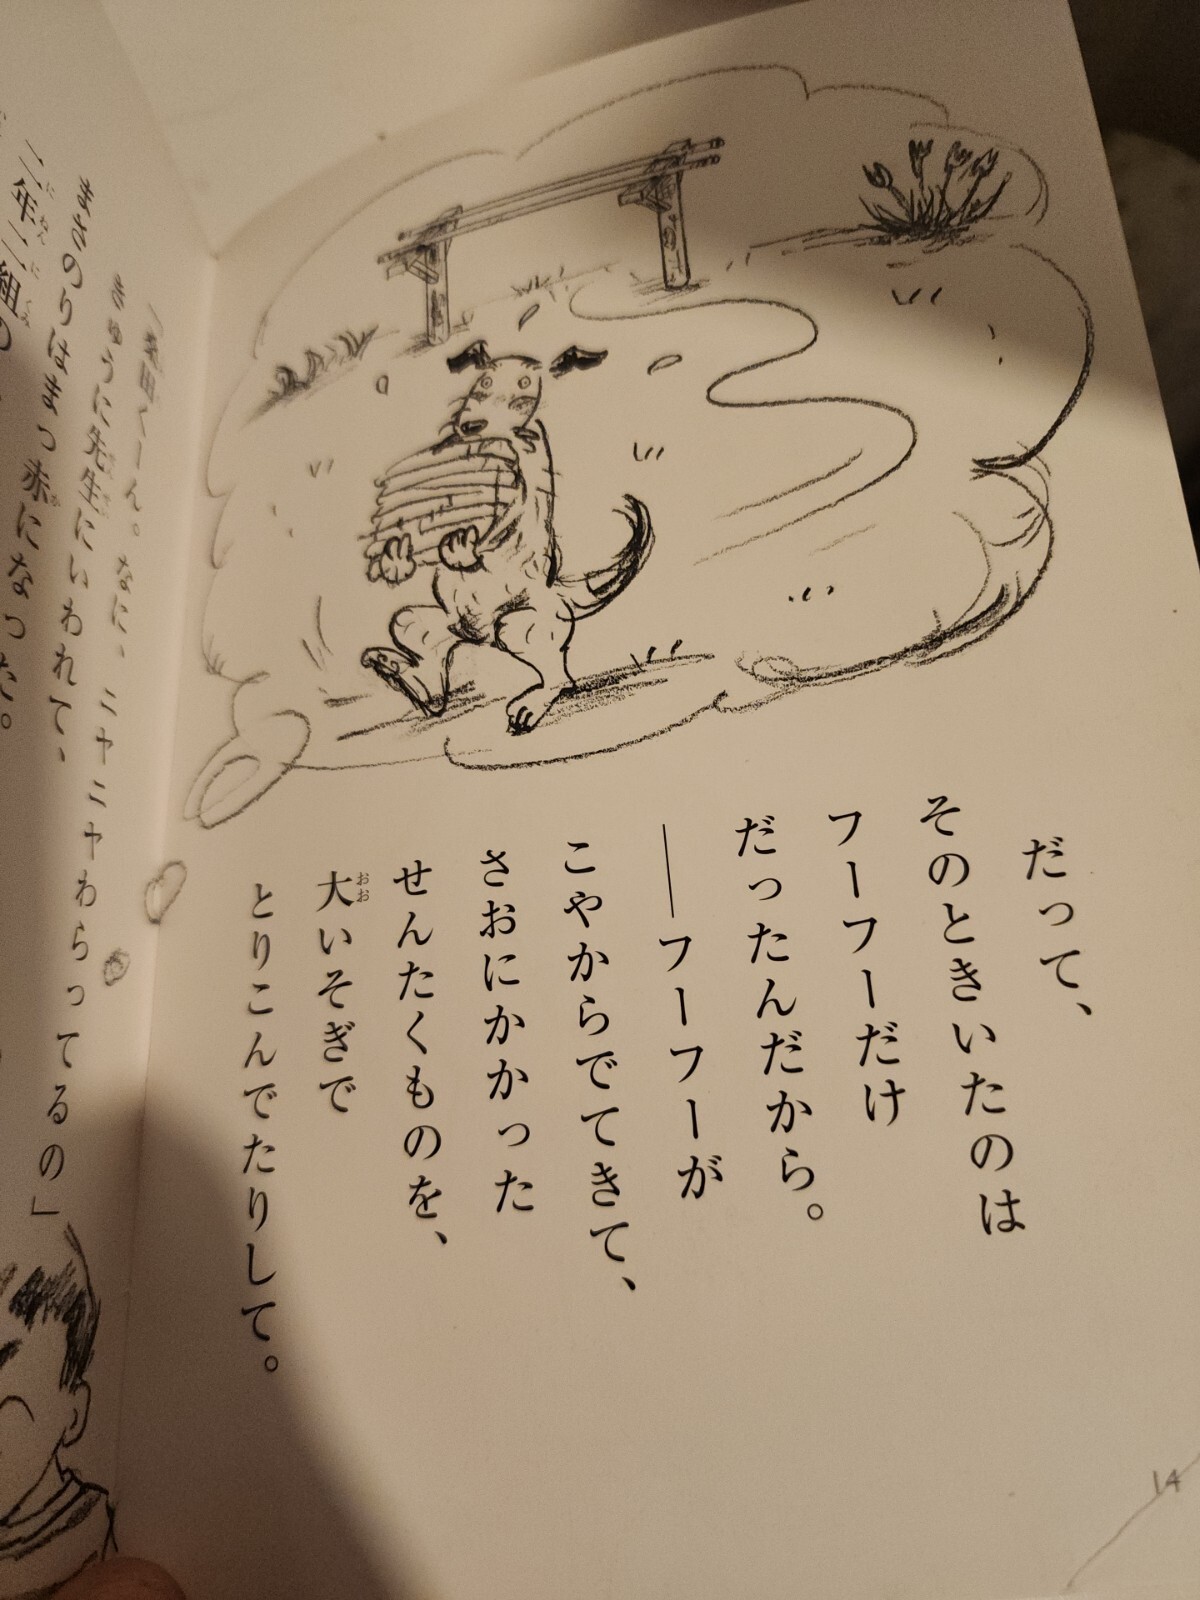 だって、
そのときいたのは
フーフーだけ
だったんだから。
――フーフーが
こやからでてきて、
さおにかかった
せんたくものを、
大いそぎで
おお
とりこんでたりして。
14
くーん。なに、ニヤニヤわらってるの」
きゅうに先生にいわれて、
まさのりはまっ赤になった。
二年二組の